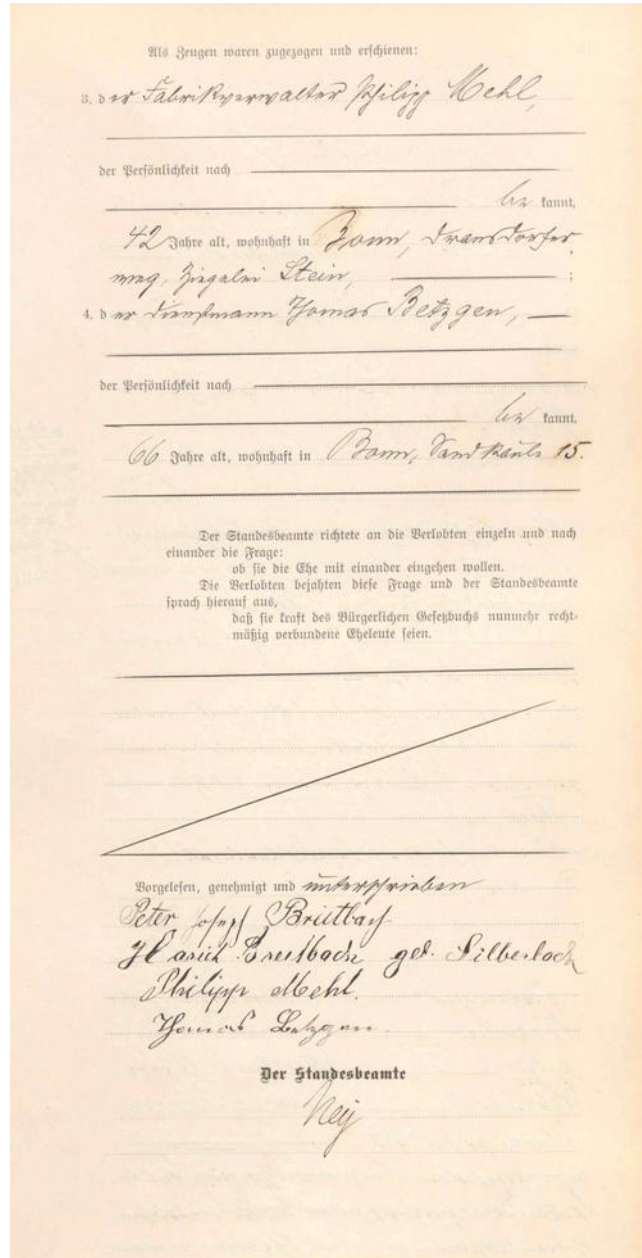 Als Zeugen waren zugezogen und erschienen:
3. der Fabrikverwalter Philipp Mehl,
der Persönlichkeit nach
be kannt,
42 Jahre alt, wohnhaft in Bonn, Dransdorfer
weg, Ziegelei Stein, ;
4. der Dienstmann Thomas Betzgen,
der Persönlichkeit nach
be kannt,
66 Jahre alt, wohnhaft in Bonn, Sandkaule 15.
Der Standesbeamte richtete an die Verlobten einzeln und nach
einander die Frage:
ob sie die Ehe mit einander eingehen wollen.
Die Verlobten bejahten diese Frage und der Standesbeamte
sprach hierauf aus,
daß sie kraft des Bürgerlichen Gesetzbuchs nunmehr recht-
mäßig verbundene Eheleute seien.
Vorgelesen, genehmigt und unterschrieben
Peter Joseph Breitbach
Breitbach geb. Silberbach
Philipp Mehl.
Thomas Betzgen
Der Standesbeamte